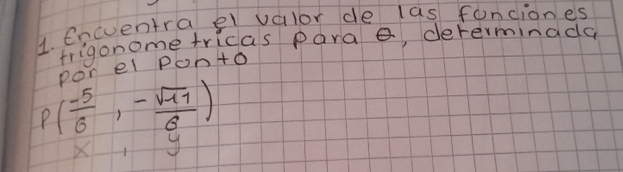 1. Encuentra el valor de las funciones
trigonometricas para ɵ, determinada
por el ponto
P(-5/6, -√11/6)
x, y